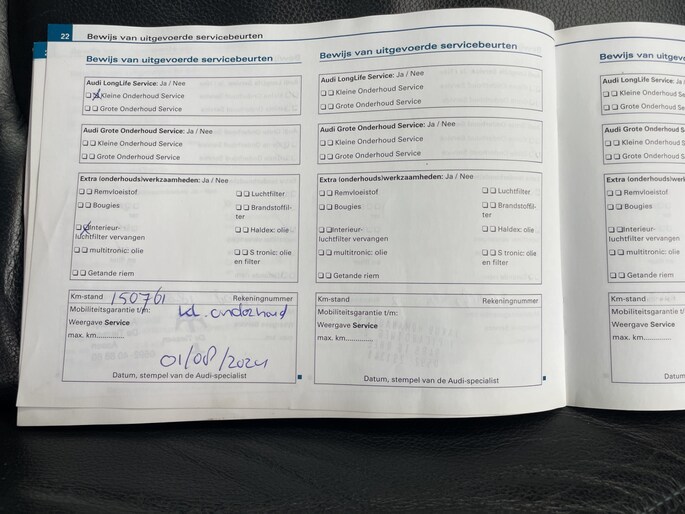 22 Bewijs van uitgevoerde servicebeurten
Bewijs van uitgevoerde servicebeurten
Audi LongLife Service: Ja / Nee
Kleine Onderhoud Service
Grote Onderhoud Service
Audi Grote Onderhoud Service: Ja / Nee
Grote Onderhoud Service
Extra (onderhouds)werkzaamheden: Ja / Nee
Remvloeistof
Luchtfilter
Bougies
Brandstoffil-
ter
Interieur-
luchtfilter vervangen
Haldex: olie
multitronic: olie
S tronic: olie
en filter
Getande riem
Km-stand 150761 Rekeningnummer
Mobiliteitsgarantie t/m: kl. onderhoud
Weergave Service
max. km.............
01/08/2024
Datum, stempel van de Audi-specialist
Bewijs van uitgevoerde servicebeurten
Audi LongLife Service: Ja / Nee
Kleine Onderhoud Service
Grote Onderhoud Service
Audi Grote Onderhoud Service: Ja / Nee
Grote Onderhoud Service
Extra (onderhouds)werkzaamheden: Ja / Nee
Remvloeistof
Luchtfilter
Bougies
Brandstoffil-
ter
Interieur-
luchtfilter vervangen
Haldex: olie
multitronic: olie
S tronic: olie
en filter
Getande riem
Km-stand Rekeningnummer
Mobiliteitsgarantie t/m:
Weergave Service
max. km.............
Datum, stempel van de Audi-specialist
Bewijs van uitgev
Audi LongLife Service: Ja
Kleine Onderhoud Se
Grote Onderhoud Ser
Audi Grote Onderhoud S
Grote Onderhoud S
Extra (onderhouds)werk
Remvloeistof
Bougies
Interieur-
luchtfilter vervangen
multitronic: olie
Getande riem
Km-stand
Mobiliteitsgarantie t/m:
Weergave Service
max. km.............
Datum,